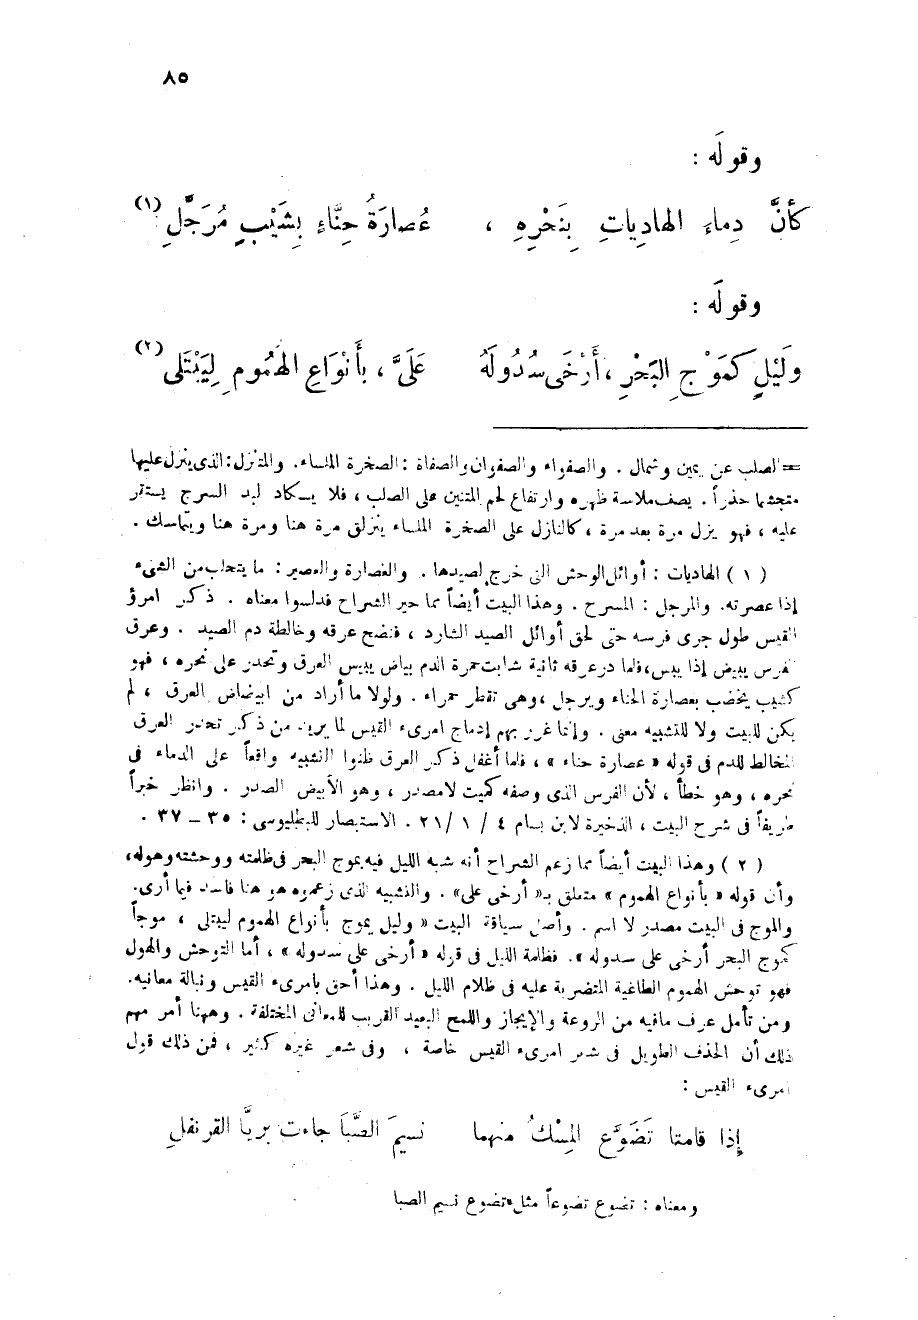 ٨٥
وقولَه :
كأنَّ دِماءَ الهادِياتِ بِنَحْرِهِ ، عُصارَةُ حِنَّاءٍ بِشَيْبٍ مُرَجَّلِ (١)
وقولَه :
ولَيْلٍ كمَوْجِ البَحْرِ ، أَرْخَى سُدُولَهُ عَلَىَّ ، بأَنْوَاعِ الهُمُومِ لِيَبْتَلِى (٢)
= الصلب عن يمين وشمال . والصفواء والصفوان والصفاة : الصخرة الملساء. والمتنزل: الذى ينزل عليها
متجشما حذراً . يصف ملاسة ظهره وارتفاع لحم المتنين على الصلب ، فلا يسكاد لبد السرج يستقر
عليه ، فهو يزل مرة بعد مرة ، كالنازل على الصخرة الملساء ينزلق مرة هنا ومرة هنا ويتماسك .
( ١ ) الهاديات : أوائل الوحش التى خرج لصيدها . والعصارة والعصير : ما يتحلب من الشىء
إذا عصرته. والمرجل : المسرح . وهذا البيت أيضاً مما حير الشراح فدلسوا معناه . ذكر امرؤ
القيس طول جرى فرسه حتى لحق أوائل الصيد الشارد ، فنضح عرقه وخالطة دم الصيد . وعرق
الفرس يبيض إذا يبس، فلما در عرقه ثانية شابت حمرة الدم بياض يبيس العرق وتحدر على نحره ، فهو
كشيب يخضب بعصارة الحناء ويرجل ، وهى تقطر حمراء . ولولا ما أراد من ابيضاض العرق ، لم
يكن للبيت ولا للتشبيه معنى . وإنما غرر بهم إدماج امرىء القيس لما يريد من ذكر تحدر العرق
المخالط للدم فى قوله « عصارة حناء » ، فلما أغفل ذكر العرق ظنوا التشبيه واقعاً على الدماء فى
نحره ، وهو خطأ ، لأن الفرس الذى وصفه كميت لا مصدر ، وهو الأبيض الصدر . وانظر خبراً
طريفاً فى شرح البيت ، الذخيرة لابن بسام ٤ / ١ / ٢١ . الاستبصار للبطليوسى : ٣٥ – ٣٧ .
( ٢ ) وهذا البيت أيضاً مما زعم الشراح أنه شبه الليل فيه بموج البحر فى ظلمته ووحشته وهوله،
وأن قوله « بأنواع الهموم » متعلق بـ« أرخى على» . والتشبيه الذى زعموه هو هنا فاسد فيما أرى.
والموج فى البيت مصدر لا اسم . وأصل سياقة البيت « وليل يموج بأنواع الهموم ليبتلى ، موجاً
كموج البحر أرخى على سدوله ». فظلمة الليل فى قوله « أرخى على سدوله » ، أما التوحش والهول
فهو توحش الهموم الطاغية المتضربة عليه فى ظلام الليل . وهذا أحق بامرىء القيس ونبالة معانيه.
ومن تأمل عرف مافيه من الروعة والإيجاز واللمع البعيد القريب للمعانى المختلفة . وههنا أمر مهم
ذلك أن الحذف الطويل فى شعر امرىء القيس خاصة ، وفى شعر غيره كثير ، فمن ذلك قول
امرىء القيس :
إِذا قامتا تَضَوَّع المِسْكُ منهما نسيمَ الصَّبَا جاءت بريَّا القرنفلِ
ومعناه : تضوع تضوعاً مثل تضوع نسيم الصبا